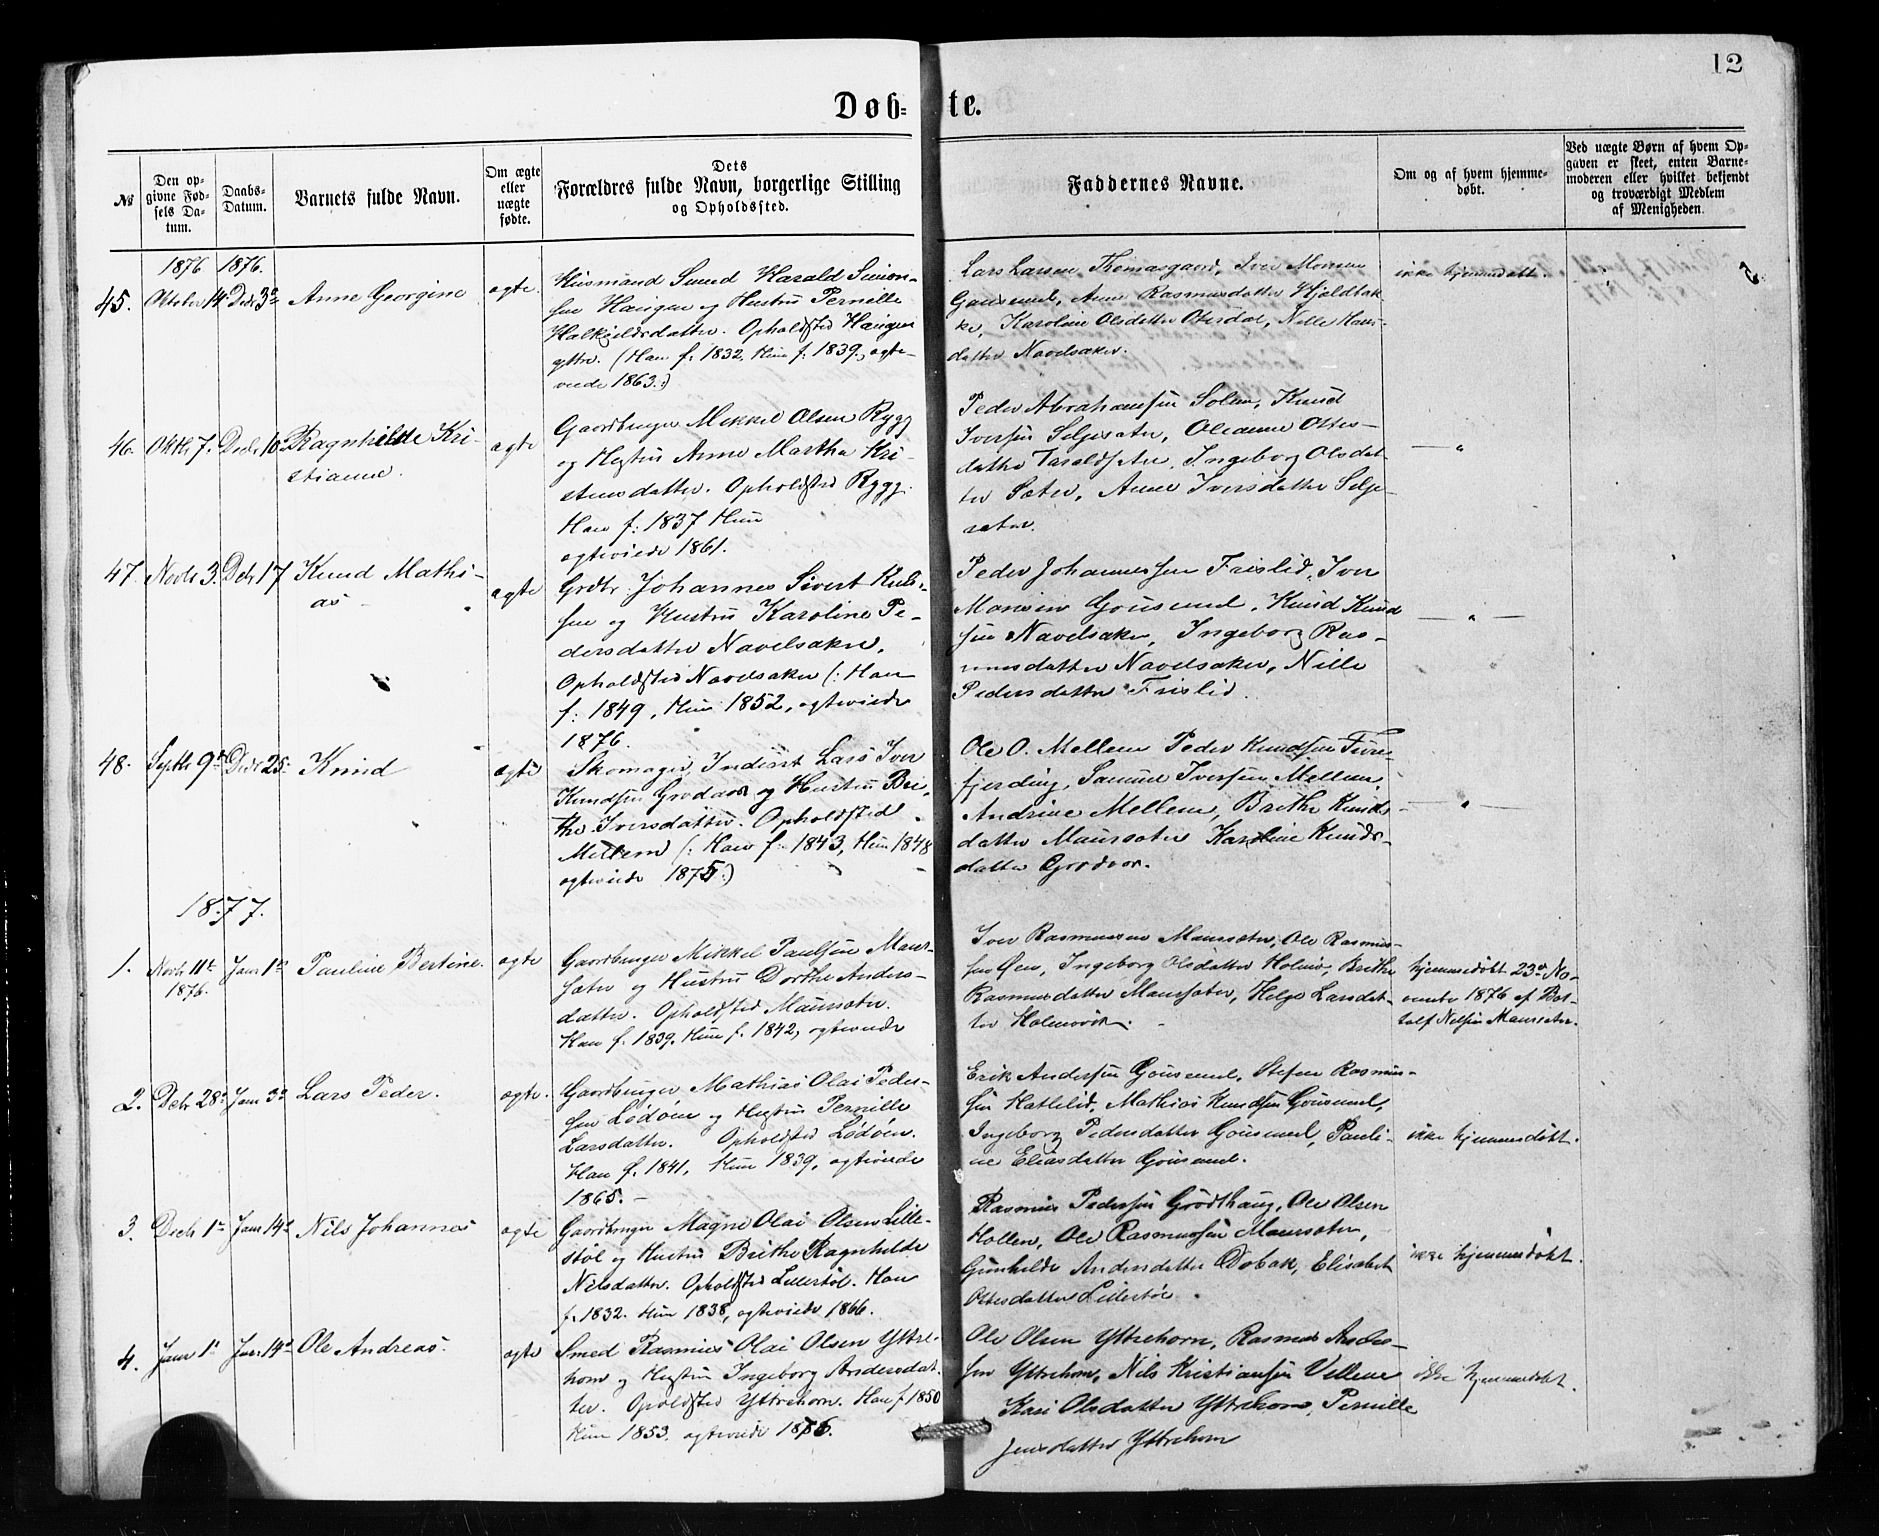 12
Døb-te.
№
Den op-
givne Fød-
sels Da-
tum.
Daabs-
Datum.
Barnets fulde Navn.
Om ægte
eller
uægte
fødte.
Dets
Forældres fulde Navn, borgerlige Stilling
og Opholdssted.
Faddernes Navne.
Om og af hvem hjemme-
døbt.
Ved uægte Børn af hvem Op-
gaven er skeet, enten Barne-
moderen eller hvilket bekjendt
og troværdigt Medlem
af Menigheden.
1876 1876.
45. Oktober 14 Decbr 3d Anne Georgine ægte
Husmand Smed Harald Simon-
sen Haugen og Hustru Pernille
Halkjeldsdatter. Opholdsted Haugen
yttre. (Han f. 1832, Hun f. 1839, ægte-
viede 1863.)
Lars Larsen Thomasgaard, Iver Monsen
Gausemel, Anne Rasmusdatter Hjeldbak
ke, Karoline Olsdatter Otterdal, Nille Hans-
datter Navelsaker.
ikke hjemmedøbt.
46. Oktbr 7. Decbr 10 Ragnhilde Kri-
stianne. ægte
Gaardbruger Mikkel Olsen Rygg
og Hustru Anne Martha Kri-
stensdatter. Opholdsted Rygg.
Han f. 1837 Hun
ægteviede 1861.
Peder Abrahamsen Solem, Knud
Iversen Seljesæter, Oleanne Ottes-
datter Taraldsæter, Ingeborg Olsdat-
ter Sæter, Anne Iversdatter Selje-
sæter.
— " —
47. Novbr 3. Decbr 17 Knud Mathi-
as ægte
Grdbr. Johannes Sivert Knud-
sen og Hustru Karoline Pe-
dersdatter Navelsaker.
Opholdsted Navelsaker (: Han
f: 1849, Hun 1852, ægteviede
1876.
Peder Johannessen Frislid, Iver
Monsen Gousemel, Knud Knud
sen Navelsaker, Ingeborg Ras-
musdatter Navelsaker, Nille
Pedersdatter Frislid.
— " —
48. Septbr 9de Decbr 25 Knud ægte
Skomager, Inderst Lars Iver
Knudsen Grodaas og Hustru Bri-
the Iversdatter. Opholdsted
Mellem (: Han f. 1843, Hun 1848
ægteviede 1875.)
Ole O. Mellem Peder Knudsen Fore-
fjerding, Samuel Iversen Mellem,
Andrine Mellem, Brithe Knuds
datter Maursæter Karoline Knuds-
datter Grodaas.
— " —
1877.
1. Novbr 11te
1876. Janr 1ste Pauline Bertine. ægte
Gaardbruger Mikkel Paulsen Maur-
sæter og Hustru Dorthe Anders-
datter. Opholdsted Maursæter.
Han f. 1839. Hun f. 1842, ægteviede
Iver Rasmussen Maursæter, Ole Rasmus-
sen Øen, Ingeborg Olsdatter Holmø, Brithe
Rasmusdatter Maursæter, Helge Larsdat-
ter Holmøvik.
hjemmedøbt 23de No-
vember 1876 af Bot-
tolf Nilsen Maursæter.
2. Decbr 28de Janr 3die Lars Peder. ægte.
Gaardbruger Mathias Olai Peder-
sen Lødøen og Hustru Pernille
Larsdatter. Opholdsted Lødøen.
Han f. 1841, Hun 1839, ægteviede
1865. —
Erik Andersen Gousemel, Stefen Rasmus-
sen Hatlelid, Mathias Knudsen Gousemel,
Ingeborg Pedersdatter Gousemel, Pauli-
ne Eliasdatter Gousemel.
ikke hjemmedøbt.
3. Decbr 1ste Janr 14de Nils Johannes ægte
Gaardbruger Magne Olai Olsen Lille-
støl og Hustru Brithe Ragnhilde
Nilsdatter. Opholdsted Lillestøl. Han
f. 1832. Hun 1838, ægteviede 1866.
Rasmus Pedersen Grødthaug, Ole Olsen
Hollen, Ole Rasmussen Maursæter,
Gunhilde Andersdatter Dobak, Elisabet
Ottesdatter Lillestøl.
ikke hjemmedøbt.
4. Janr 1ste Janr 14de Ole Andreas. ægte
Smed Rasmus Olai Olsen Yttre-
horn og Hustru Ingeborg Andersdat-
ter. Opholdsted Yttrehorn. Han f. 1850
Hun 1853. ægteviede 1876.
Ole Olsen Yttrehorn, Rasmus Anders-
sen Yttrehorn, Nils Kristiansen Vellene
Kari Olsdatter Yttrehorn, Pernille
Jensdatter Yttrehorn
ikke hjemmedøbt.